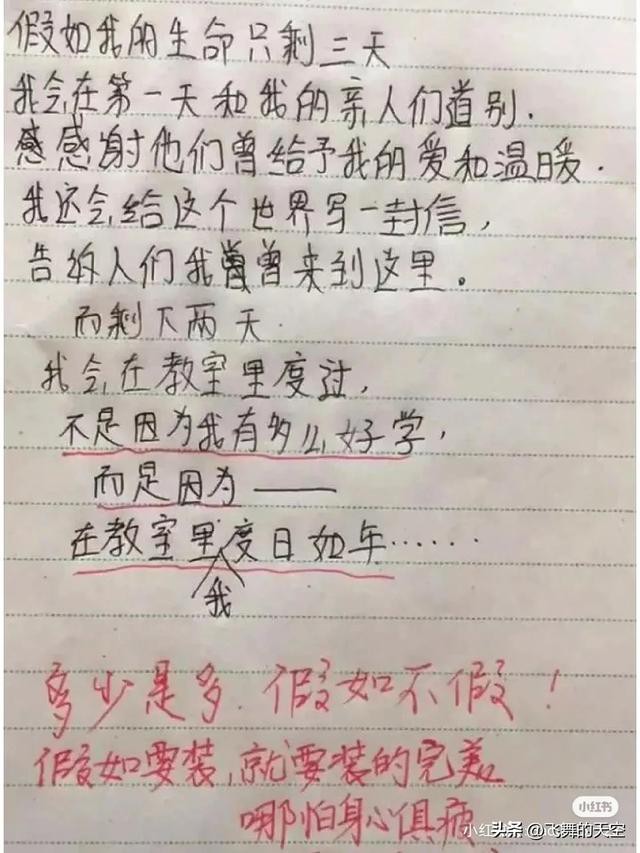 假如我的生命只剩三天
我会在第一天和我的亲人们道别.
感感谢他们曾给予我的爱和温暖.
我还会给这个世界写一封信,
告诉人们我曾曾来到这里。
而剩下两天
我会在教室里度过,
不是因为我有多么好学,
而是因为——
在教室里我度日如年……
多少是多.假如不假!
假如要装,就要装的完美
哪怕身心俱疲
小红书
头条 @飞舞的天空